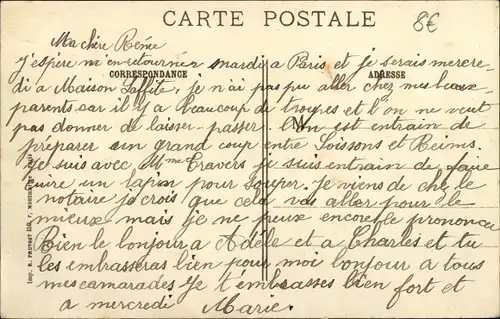 CARTE POSTALE
8€
Ma chère Rénée
j'éspère m'en retourner mardi a Paris et je serais mercre-
CORRESPONDANCE
ADRESSE
di a Maison Laffite, je n'ai pas pu aller chez mes beaux
parents car il y a beaucoup de troupes et l'on ne veut
pas donner de laisser-passer. L'on est entrain de
préparer un grand coup entre Soissons et Reims.
Je suis avec Mme Travers je suis entrain de faire
cuire un lapin pour souper. Je viens de chez le
notaire je crois que cela vas aller pour le
mieux mais je ne peux encore le prononcer
Bien le bonjour a Adèle et a Charles et tu
les embrasseras bien pour moi bonjour a tous
mes camarades je t'embrasses bien fort et
a mercredi Marie.